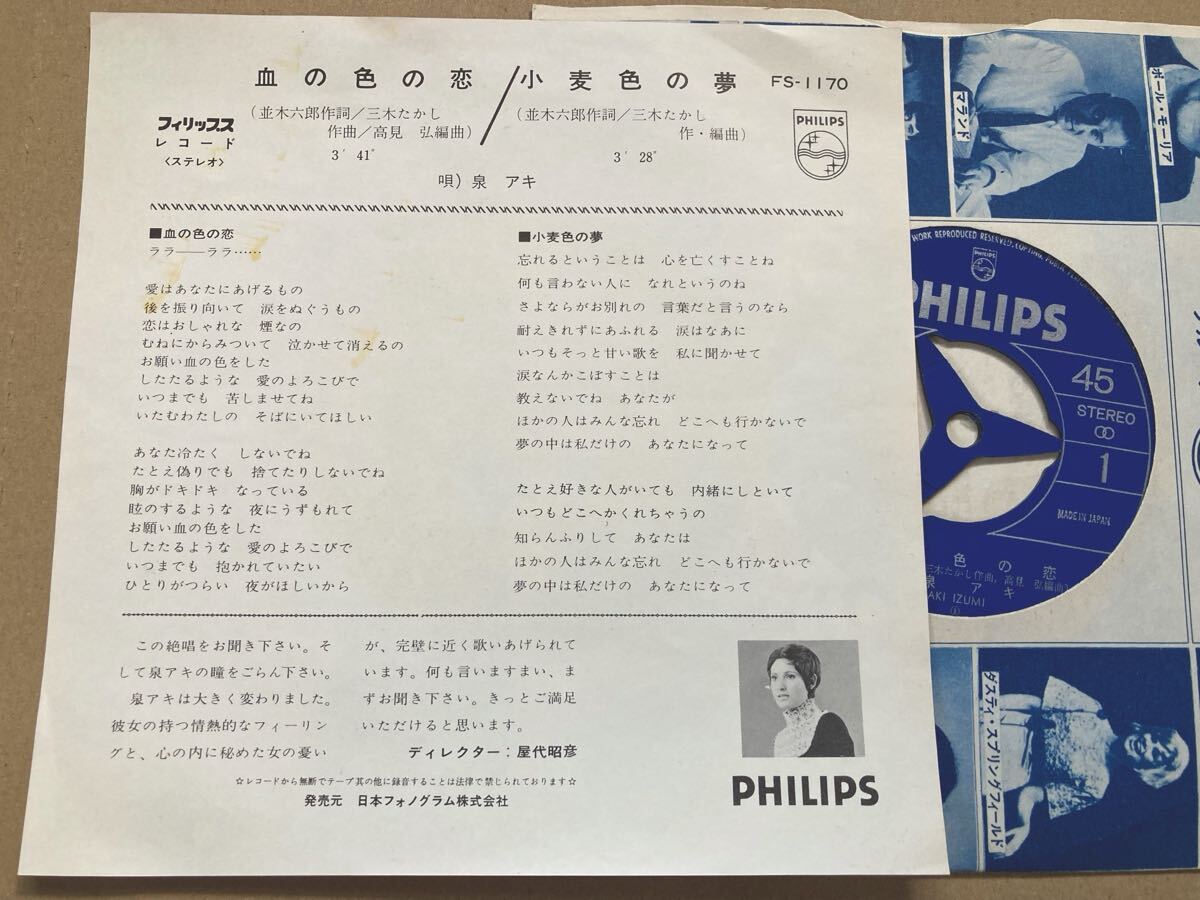 血の色の恋／小麦色の夢 FS-1170
フィリップス
レコード
〈ステレオ〉
(並木六郎作詞／三木たかし
作曲／高見 弘編曲)
3′41″
(並木六郎作詞／三木たかし
作・編曲)
3′28″
PHILIPS
唄) 泉 アキ
■血の色の恋
ララ――ララ……
愛はあなたにあげるもの
後を振り向いて 涙をぬぐうもの
恋はおしゃれな 煙なの
むねにからみついて 泣かせて消えるの
お願い血の色をした
したたるような 愛のよろこびで
いつまでも 苦しませてね
いたむわたしの そばにいてほしい
あなた冷たく しないでね
たとえ偽りでも 捨てたりしないでね
胸がドキドキ なっている
眩のするような 夜にうずもれて
お願い血の色をした
したたるような 愛のよろこびで
いつまでも 抱かれていたい
ひとりがつらい 夜がほしいから
■小麦色の夢
忘れるということは 心を亡くすことね
何も言わない人に なれというのね
さよならがお別れの 言葉だと言うのなら
耐えきれずにあふれる 涙はなあに
いつもそっと甘い歌を 私に聞かせて
涙なんかこぼすことは
教えないでね あなたが
ほかの人はみんな忘れ どこへも行かないで
夢の中は私だけの あなたになって
たとえ好きな人がいても 内緒にしといて
いつもどこへかくれちゃうの
知らんふりして あなたは
ほかの人はみんな忘れ どこへも行かないで
夢の中は私だけの あなたになって
この絶唱をお聞き下さい。そ
して泉アキの瞳をごらん下さい。
泉アキは大きく変わりました。
彼女の持つ情熱的なフィーリン
グと、心の内に秘めた女の憂い
が、完璧に近く歌いあげられて
います。何も言いますまい、ま
ずお聞き下さい。きっとご満足
いただけると思います。
ディレクター：屋代昭彦
☆レコードから無断でテープ其の他に録音することは法律で禁じられております☆
発売元 日本フォノグラム株式会社
PHILIPS
マランド
ポール・モーリア
WORK REPRODUCED RESERVED
PHILIPS
PHILIPS
45
STEREO
1
MADE IN JAPAN
色の恋
三木たかし作曲, 高見 弘編曲)
泉 アキ
AKI IZUMI
ダスティ・スプリングフィールド